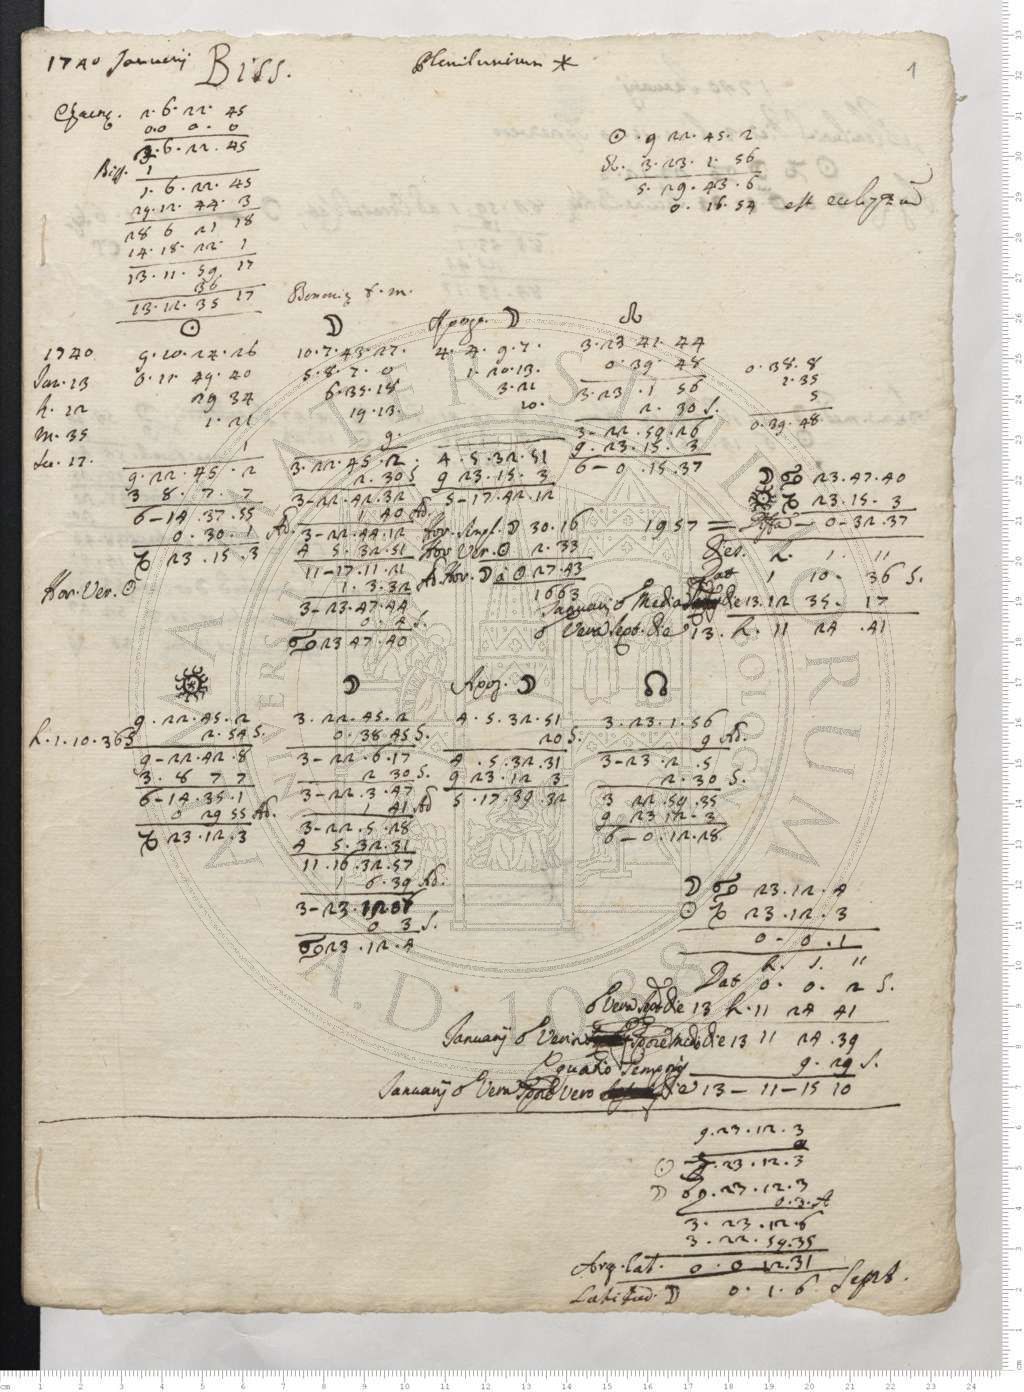 1740 Januarij Biss. Plenilunium * 1
Epacta. 2. 6. 22. 45
0.0 0. 0
6. 22. 45
Biss. 1
1. 6. 22. 45
29. 12. 44. 3
28 6 21 18
14. 18. 22. 1
13. 11. 59. 17
36
13. 12. 35 17
☉ . 9 22. 45. 2
☊. 3. 23. 1. 56
5. 29. 43. 6
0. 16. 54 est eclipsis
Bononiæ
☉ ☽ Apoge. ☽ ☊
1740 9. 10. 14. 26 10. 7. 43. 27. 4. 4. 9. 7. 3. 23 41. 44
Jan. 13 0. 11. 49. 40 5. 8. 7. 0 1. 20. 13. 0. 39. 48 0. 38. 8
h. 12 29 34 6. 35. 18 3. 21 3. 23. 1 56 1. 35
m. 35 1. 21 19. 13. 10. 2. 30 S. 5
Sec. 17. 1 9. 3- 22. 59. 26 0. 39. 48
9. 22. 45. 2 3. 22. 45. 2. 4. 5. 32. 51 9. 23. 15. 3
3 8. 7. 7 2. 30 S 9 23. 15. 3 6- 0. 15. 37
6- 14. 37. 55 3- 22. 42. 32 5- 17. 42. 12
0. 30. 1 Ad. 1 40 Ad.
♑ 23. 15. 3 3- 22. 44. 12
4 5. 32. 51
11- 17. 11. 21
1. 3. 32 Ad.
3- 23. 47. 44
0. 4 S.
♋ 23 47. 40
Hor. Ver. ☉
Hor. Simpl. ☽ 30. 16
Hor Ver. ☉ 2. 33
Hor. ☽ à ☉ 27. 43
1663
☽ ♋ 23. 47. 40
☉ ♑ 23. 15. 3
1957 = Diffa- 0- 32. 37
h. 1. 11
Dat 1 10- 36 S.
Januarij ☍ Media die 13. 12 35. 17
☍ Vera Sept. die 13. h. 11 24. 41
☉ ☽ Apog. ☽ ☊
9. 22. 45. 2 3. 22. 45. 2 4. 5. 32. 51 3. 23. 1. 56
h. 1. 10. 36 S 2. 54 S. 0. 38 45 S. 20 S. 9 Ad.
9- 22. 42. 8 3- 22. 6. 17 4. 5. 32. 31 3- 23. 2. 5
3. 8 7 7 2 30 S. 9 23. 12 3 2. 30 S.
6- 14. 35. 1 3- 22. 3. 47 5. 17. 39. 32 3 22. 59. 35
0 29 55 Ad. 1 41 Ad 9 23 12- 3
♑ 23. 12. 3 3- 22. 5. 28 6- 0. 12. 28
4 5. 32. 31
11. 16. 32. 57
1 6. 39 Ad.
3- 23. 12 07
0 3 S.
♋ 23. 12. 4
☽ ♋ 23. 12. 4
☉ ♑ 23. 12. 3
0- 0. 1
h. 1. 11
Dat 0. 0. 2 S.
☍ Vera Sept die 13 h. 11 24 41
Januarij ☍ Vera in die 13 11 24. 39
Equatio Temporis 9. 29 S.
Januarij ☍ Vera Tpore Vero die 13- 11- 15 10
9. 23. 12. 3
☉ 23. 12. 3
☽ 9. 23. 12. 3
0. 3. A
3. 23. 12. 6
3. 22. 59. 35
Arg. Lat. 0. 0 12. 31
Latitud. ☽ 0. 1. 6. Sept.